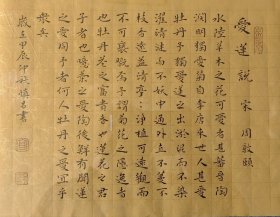 愛蓮說 宋 周敦頤
水陸草木之花可愛者甚蕃晉陶
淵明獨愛菊自李唐來世人甚愛
牡丹予獨愛蓮之出淤泥而不染
濯清漣而不妖中通外直不蔓不
枝香遠益清亭〻淨植可遠觀而
不可褻翫焉予謂菊花之隱逸者
也牡丹花之富貴者也蓮花之君
子者也噫菊之愛陶後鮮有聞蓮
之愛同予者何人牡丹之愛宜乎
衆矣
歲在甲辰仲秋書